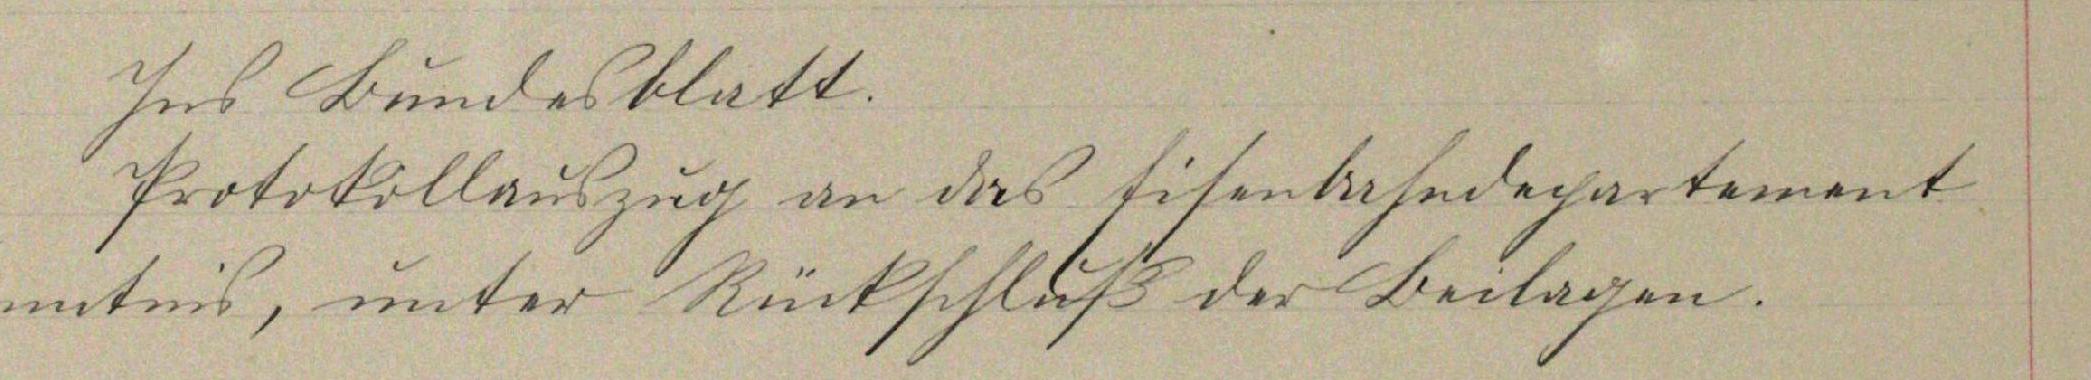 Ins Bundesblatt.
Protokollauszug an das Eisenbahndepartement
nntnis, unter Rückschluß der Beilagen.